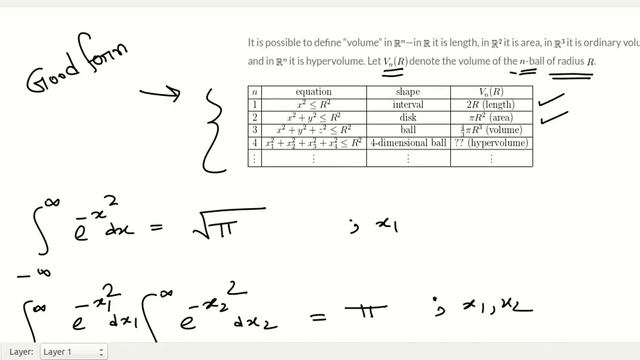 It is possible to define "volume" in ℝⁿ—in ℝ it is length, in ℝ² it is area, in ℝ³ it is ordinary
and in ℝⁿ it is hypervolume. Let Vₙ(R) denote the volume of the n-ball of radius R.
Good form
n equation shape Vₙ(R)
1 x² ≤ R² interval 2R (length)
2 x² + y² ≤ R² disk πR² (area)
3 x² + y² + z² ≤ R² ball 4/3 πR³ (volume)
4 x₁² + x₂² + x₃² + x₄² ≤ R² 4-dimensional ball ?? (hypervolume)
⋮ ⋮ ⋮ ⋮
∫_{-∞}^{∞} e^{-x²} dx = √π ; x₁
∫^{∞} e^{-x₁²} dx₁ ∫^{∞} e^{-x₂²} dx₂ = π ; x₁, x₂
Layer: Layer 1